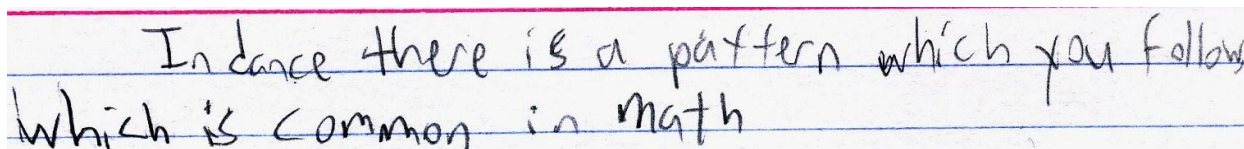 In dance there is a pattern which you follow
which is common in math